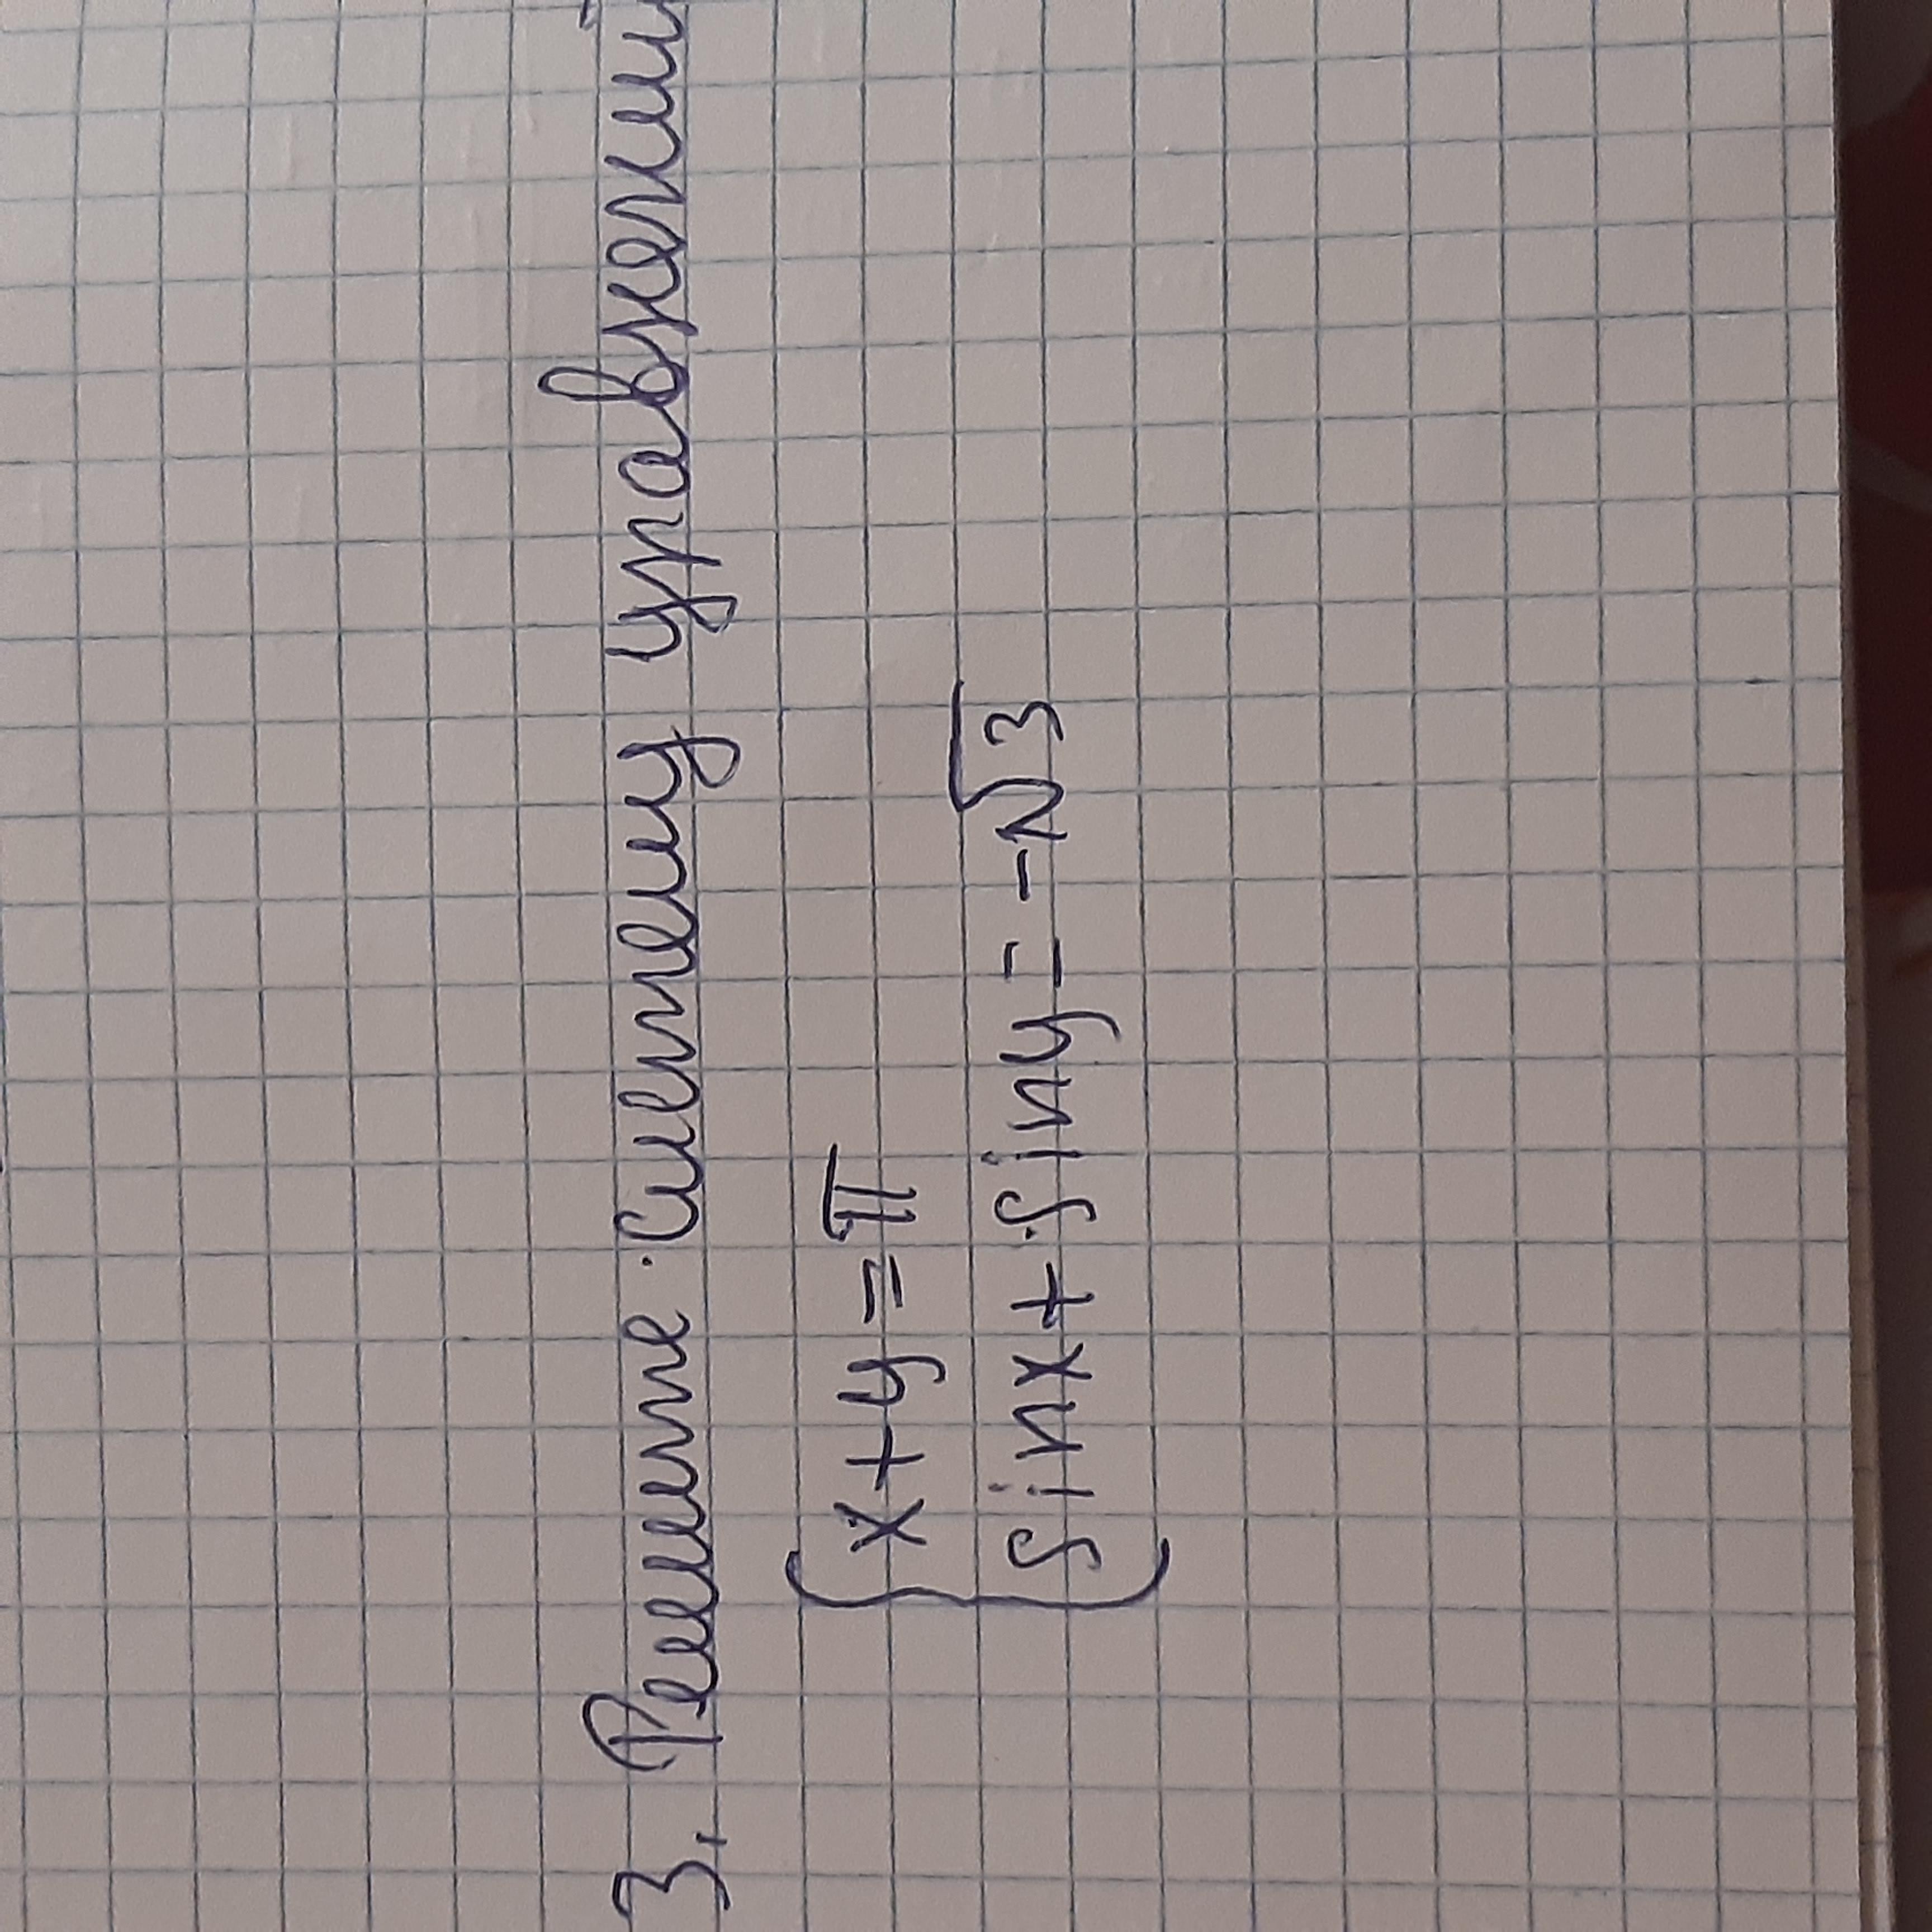 3. Решите систему уравнений
x + y = π
sin x + sin y = -√3